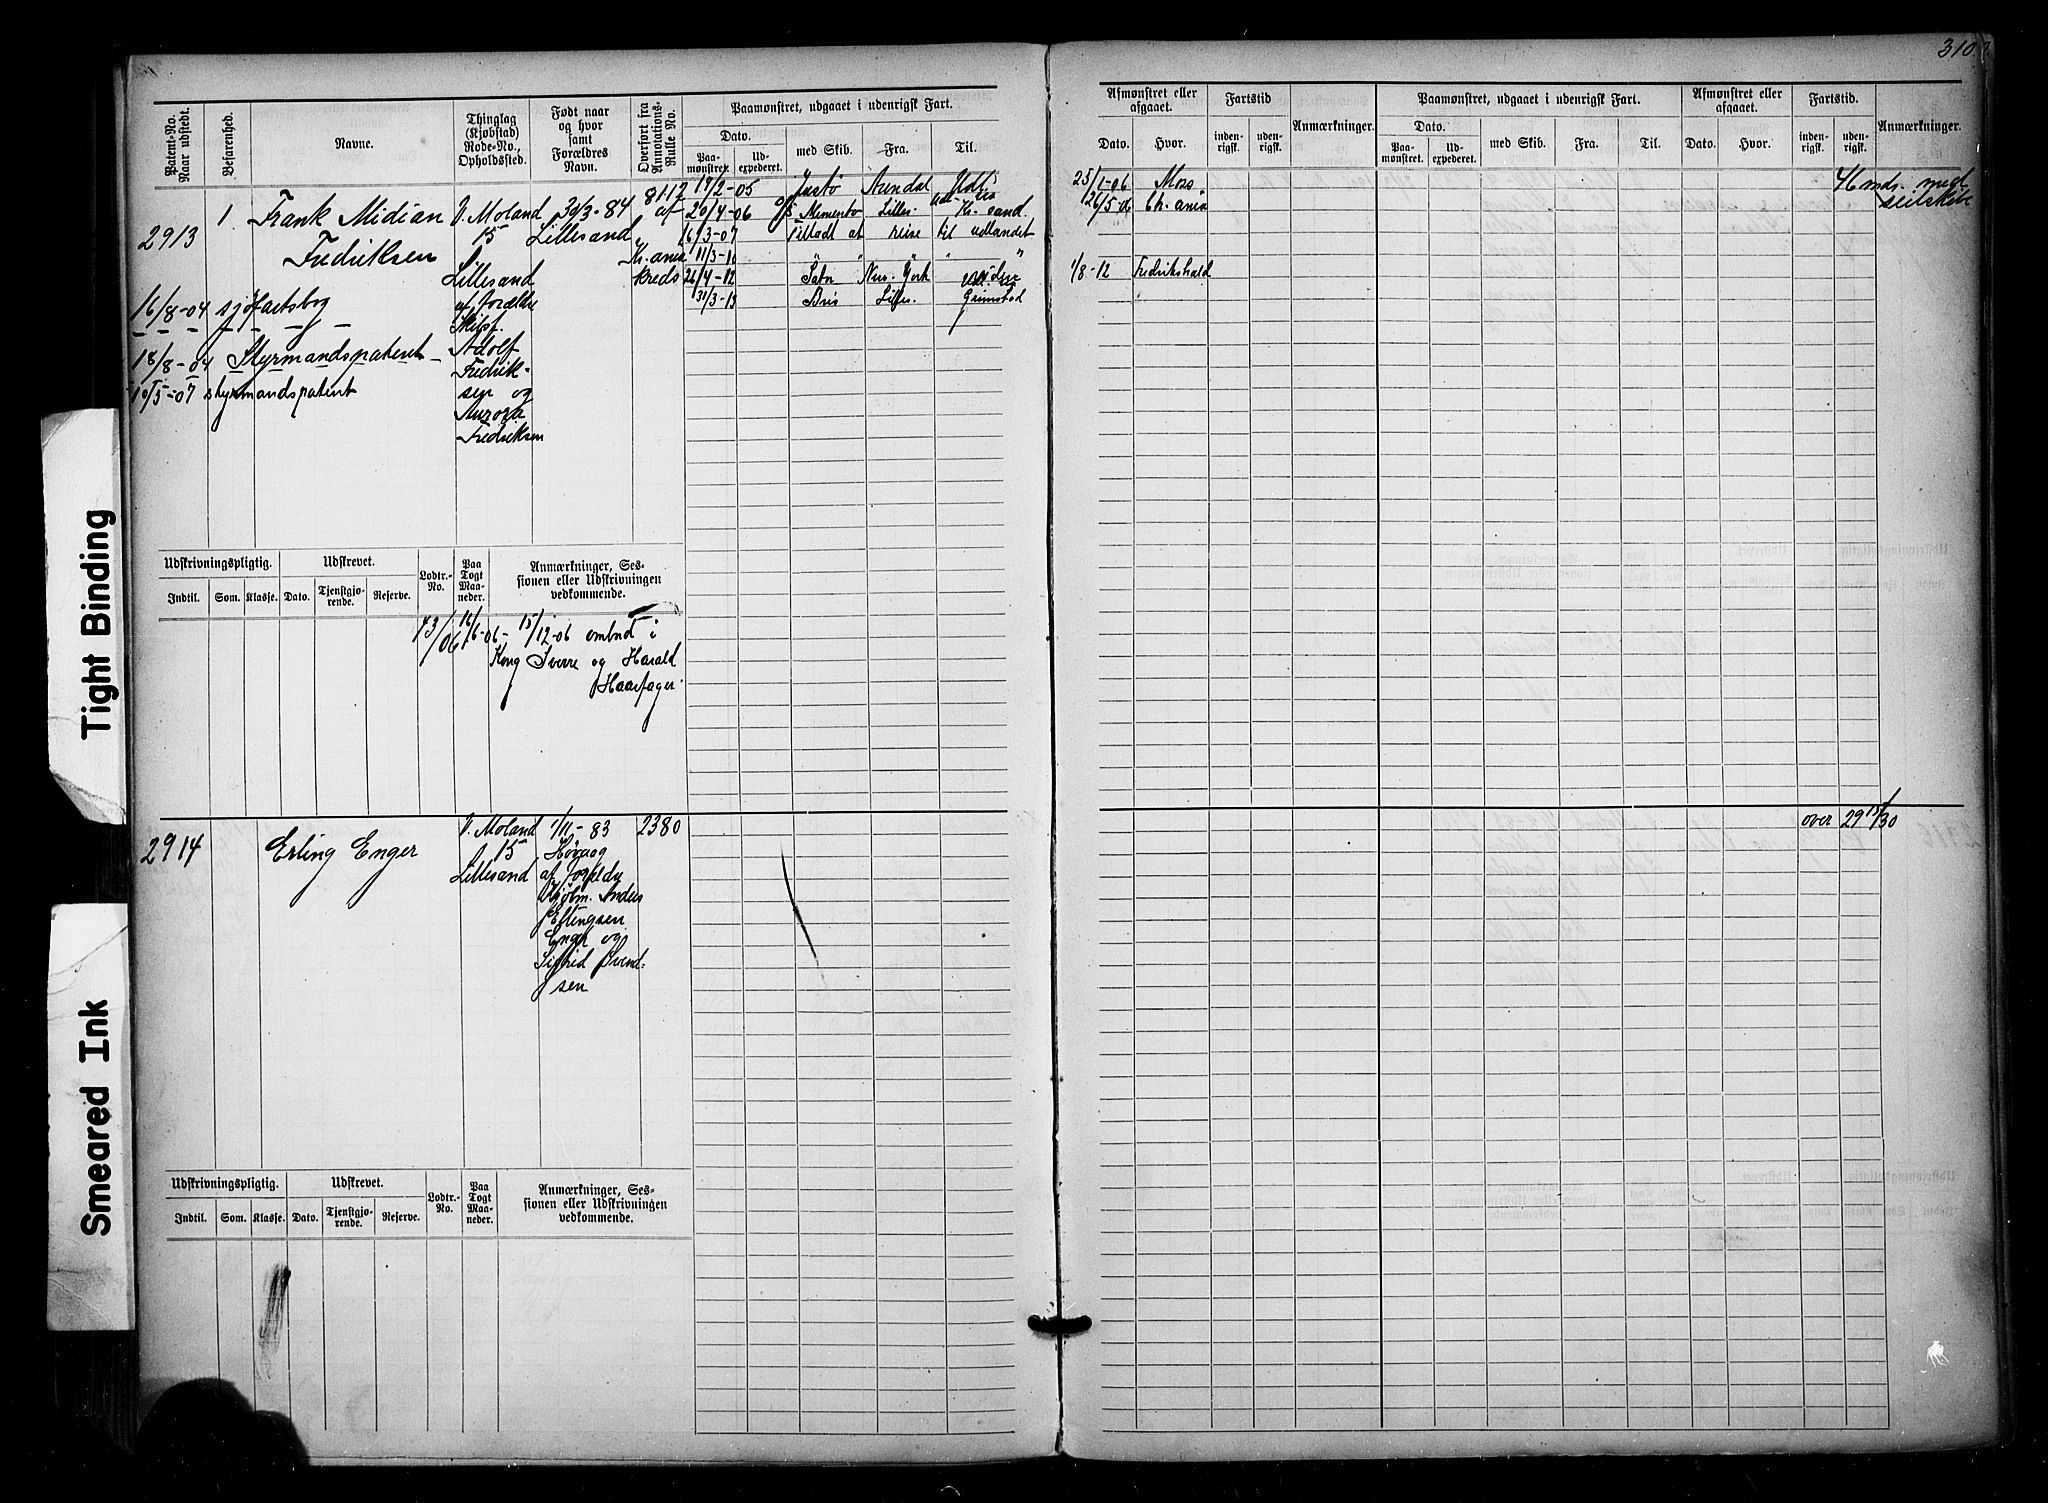 310
Patent-No. Naar udstedt.
Befarenhed.
Navne.
Thinglag (Kjøbstad) Rode-No., Opholdssted.
Født naar og hvor samt Forældres Navn.
Overført fra Annotations-Rulle No.
Paamønstret, udgaaet i udenrigsk Fart.
Dato.
Paamønstret. Udexpederet. med Skib. Fra. Til.
Afmønstret eller afgaaet.
Dato. Hvor.
Fartstid
indenrigsk. udenrigsk.
Anmærkninger.
Paamønstret, udgaaet i udenrigsk Fart.
Dato.
Paamønstret. Udexpederet. med Skib. Fra. Til.
Afmønstret eller afgaaet.
Dato. Hvor.
Fartstid.
indenrigsk. udenrigsk.
Anmærkninger.
2913
1.
Frank Midian
Fredriksen
V. Moland
15
Lillesand
30/3-84
Lillesand
af Forældre
Skibsf.
Adolf
Fredrik-
sen og
Aurora
Fredriksen
8117
af
Kr.ania
kreds
16/8-04 sjøfartsbog
18/8-04 Styrmandspatent
10/5-07 styrmandspatent
19/2-05 Justø Arendal Udl.
20/4-06 Memento Lilles. Kr.sand
16/3-07 Tilladt at reise til udlandet
11/3-10 " " " "
26/4-12 New-York
31/3-13 Bris Lilles. Grimstad
25/1-06 Moss
26/5-06 Ch.ania
1/8-12 Fredrikshald
46 mds. med
seilskib
Udskrivningspligtig.
Udskrevet.
Indtil. Som. Klasse. Dato. Tjenstgjørende. Reserve.
Lodtr.-No.
Paa Togt Maaneder.
Anmærkninger, Sessionen eller Udskrivningen vedkommende.
73/06 16/6-06 - 15/12-06 ombord i
Kong Sverre og Harald
Haarfager.
2914
Erling Enger
V. Moland
15
Lillesand
1/11-83
Høvaag
af Forældre
Kjøbm. Anders
Ellingsen
Enger og
Sigrid Svend-
sen
2380
over 29 15/1 30
Udskrivningspligtig.
Udskrevet.
Indtil. Som. Klasse. Dato. Tjenstgjørende. Reserve.
Lodtr.-No.
Paa Togt Maaneder.
Anmærkninger, Sessionen eller Udskrivningen vedkommende.
Tight Binding
Smeared Ink